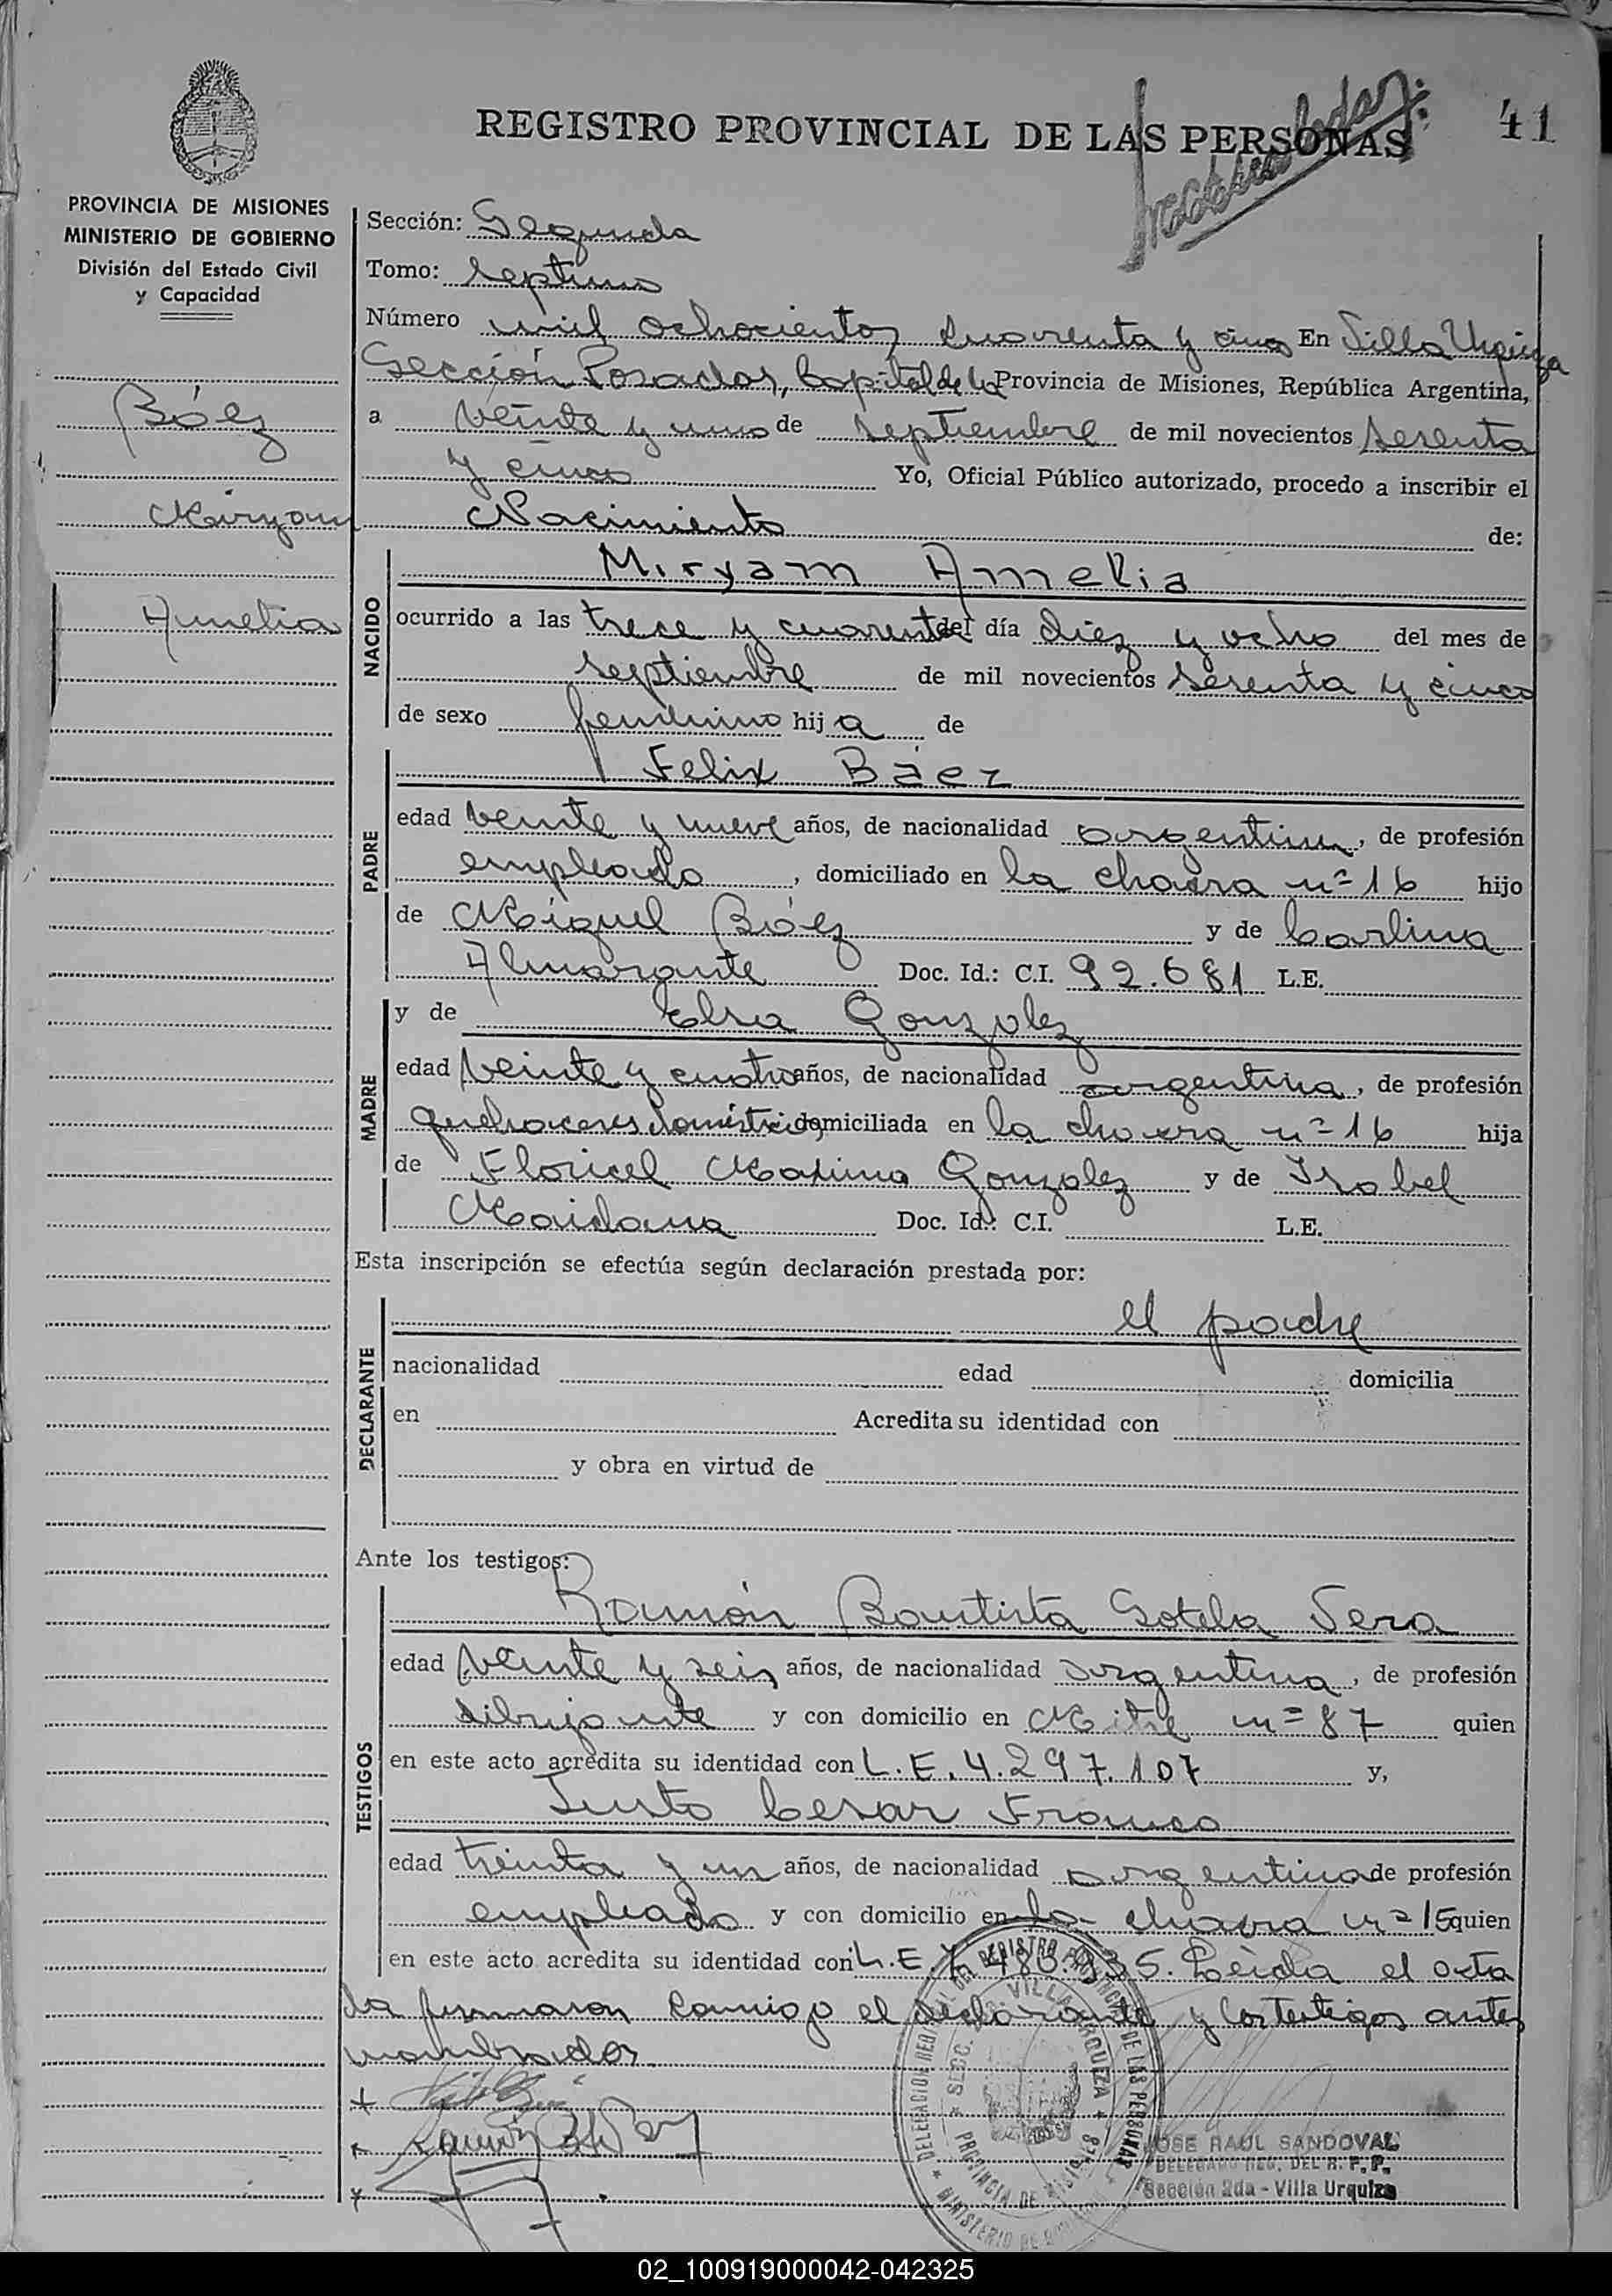 REGISTRO PROVINCIAL DE LAS PERSONAS
41
PROVINCIA DE MISIONES
MINISTERIO DE GOBIERNO
División del Estado Civil
y Capacidad
Báez
Miryam
Amelia
Sección: Segunda
Tomo: septimo
Número mil ochocientos cuarenta y cinco En Villa Urquiza
Sección Posadas, Capital de la Provincia de Misiones, República Argentina,
a veinte y uno de septiembre de mil novecientos sesenta
y cinco Yo, Oficial Público autorizado, procedo a inscribir el
Nacimiento de:
NACIDO
Miryam Amelia
ocurrido a las trece y cuarenta del día diez y ocho del mes de
septiembre de mil novecientos sesenta y cinco
de sexo femenino hija de
PADRE
Felix Báez
edad veinte y nueve años, de nacionalidad argentina, de profesión
empleado, domiciliado en la chacra nº 16 hijo
de Miguel Báez y de Carlina
Almarante Doc. Id.: C.I. 92.681 L.E.
MADRE
y de Elsa Gonzalez
edad veinte y cuatro años, de nacionalidad argentina, de profesión
quehaceres domésticos domiciliada en la chacra nº 16 hija
de Maximo Gonzalez y de Isabel
Maidana Doc. Id.: C.I. L.E.
Esta inscripción se efectúa según declaración prestada por:
DECLARANTE
el padre
nacionalidad edad domicilia
en Acredita su identidad con
y obra en virtud de
Ante los testigos:
TESTIGOS
Ramón Bautista Sotelo Vera
edad veinte y seis años, de nacionalidad argentina, de profesión
dibujante y con domicilio en Mitre nº 87 quien
en este acto acredita su identidad con L.E. 4.297.107 y,
Justo Cesar Franco
edad treinta y un años, de nacionalidad argentina de profesión
empleado y con domicilio en la chacra nº 15 quien
en este acto acredita su identidad con L.E. Leida el acta
la firmaron conmigo el declarante y los testigos antes
nombrados
DELEGACION REGIONAL DEL REGISTRO PROVINCIAL DE LAS PERSONAS
SECC. VILLA URQUIZA
PROVINCIA DE MISIONES
MINISTERIO DE GOBIERNO
JOSE RAUL SANDOVAL
DELEGADO REG. DEL R. P. P.
Sección 2da - Villa Urquiza
02_100919000042-042325